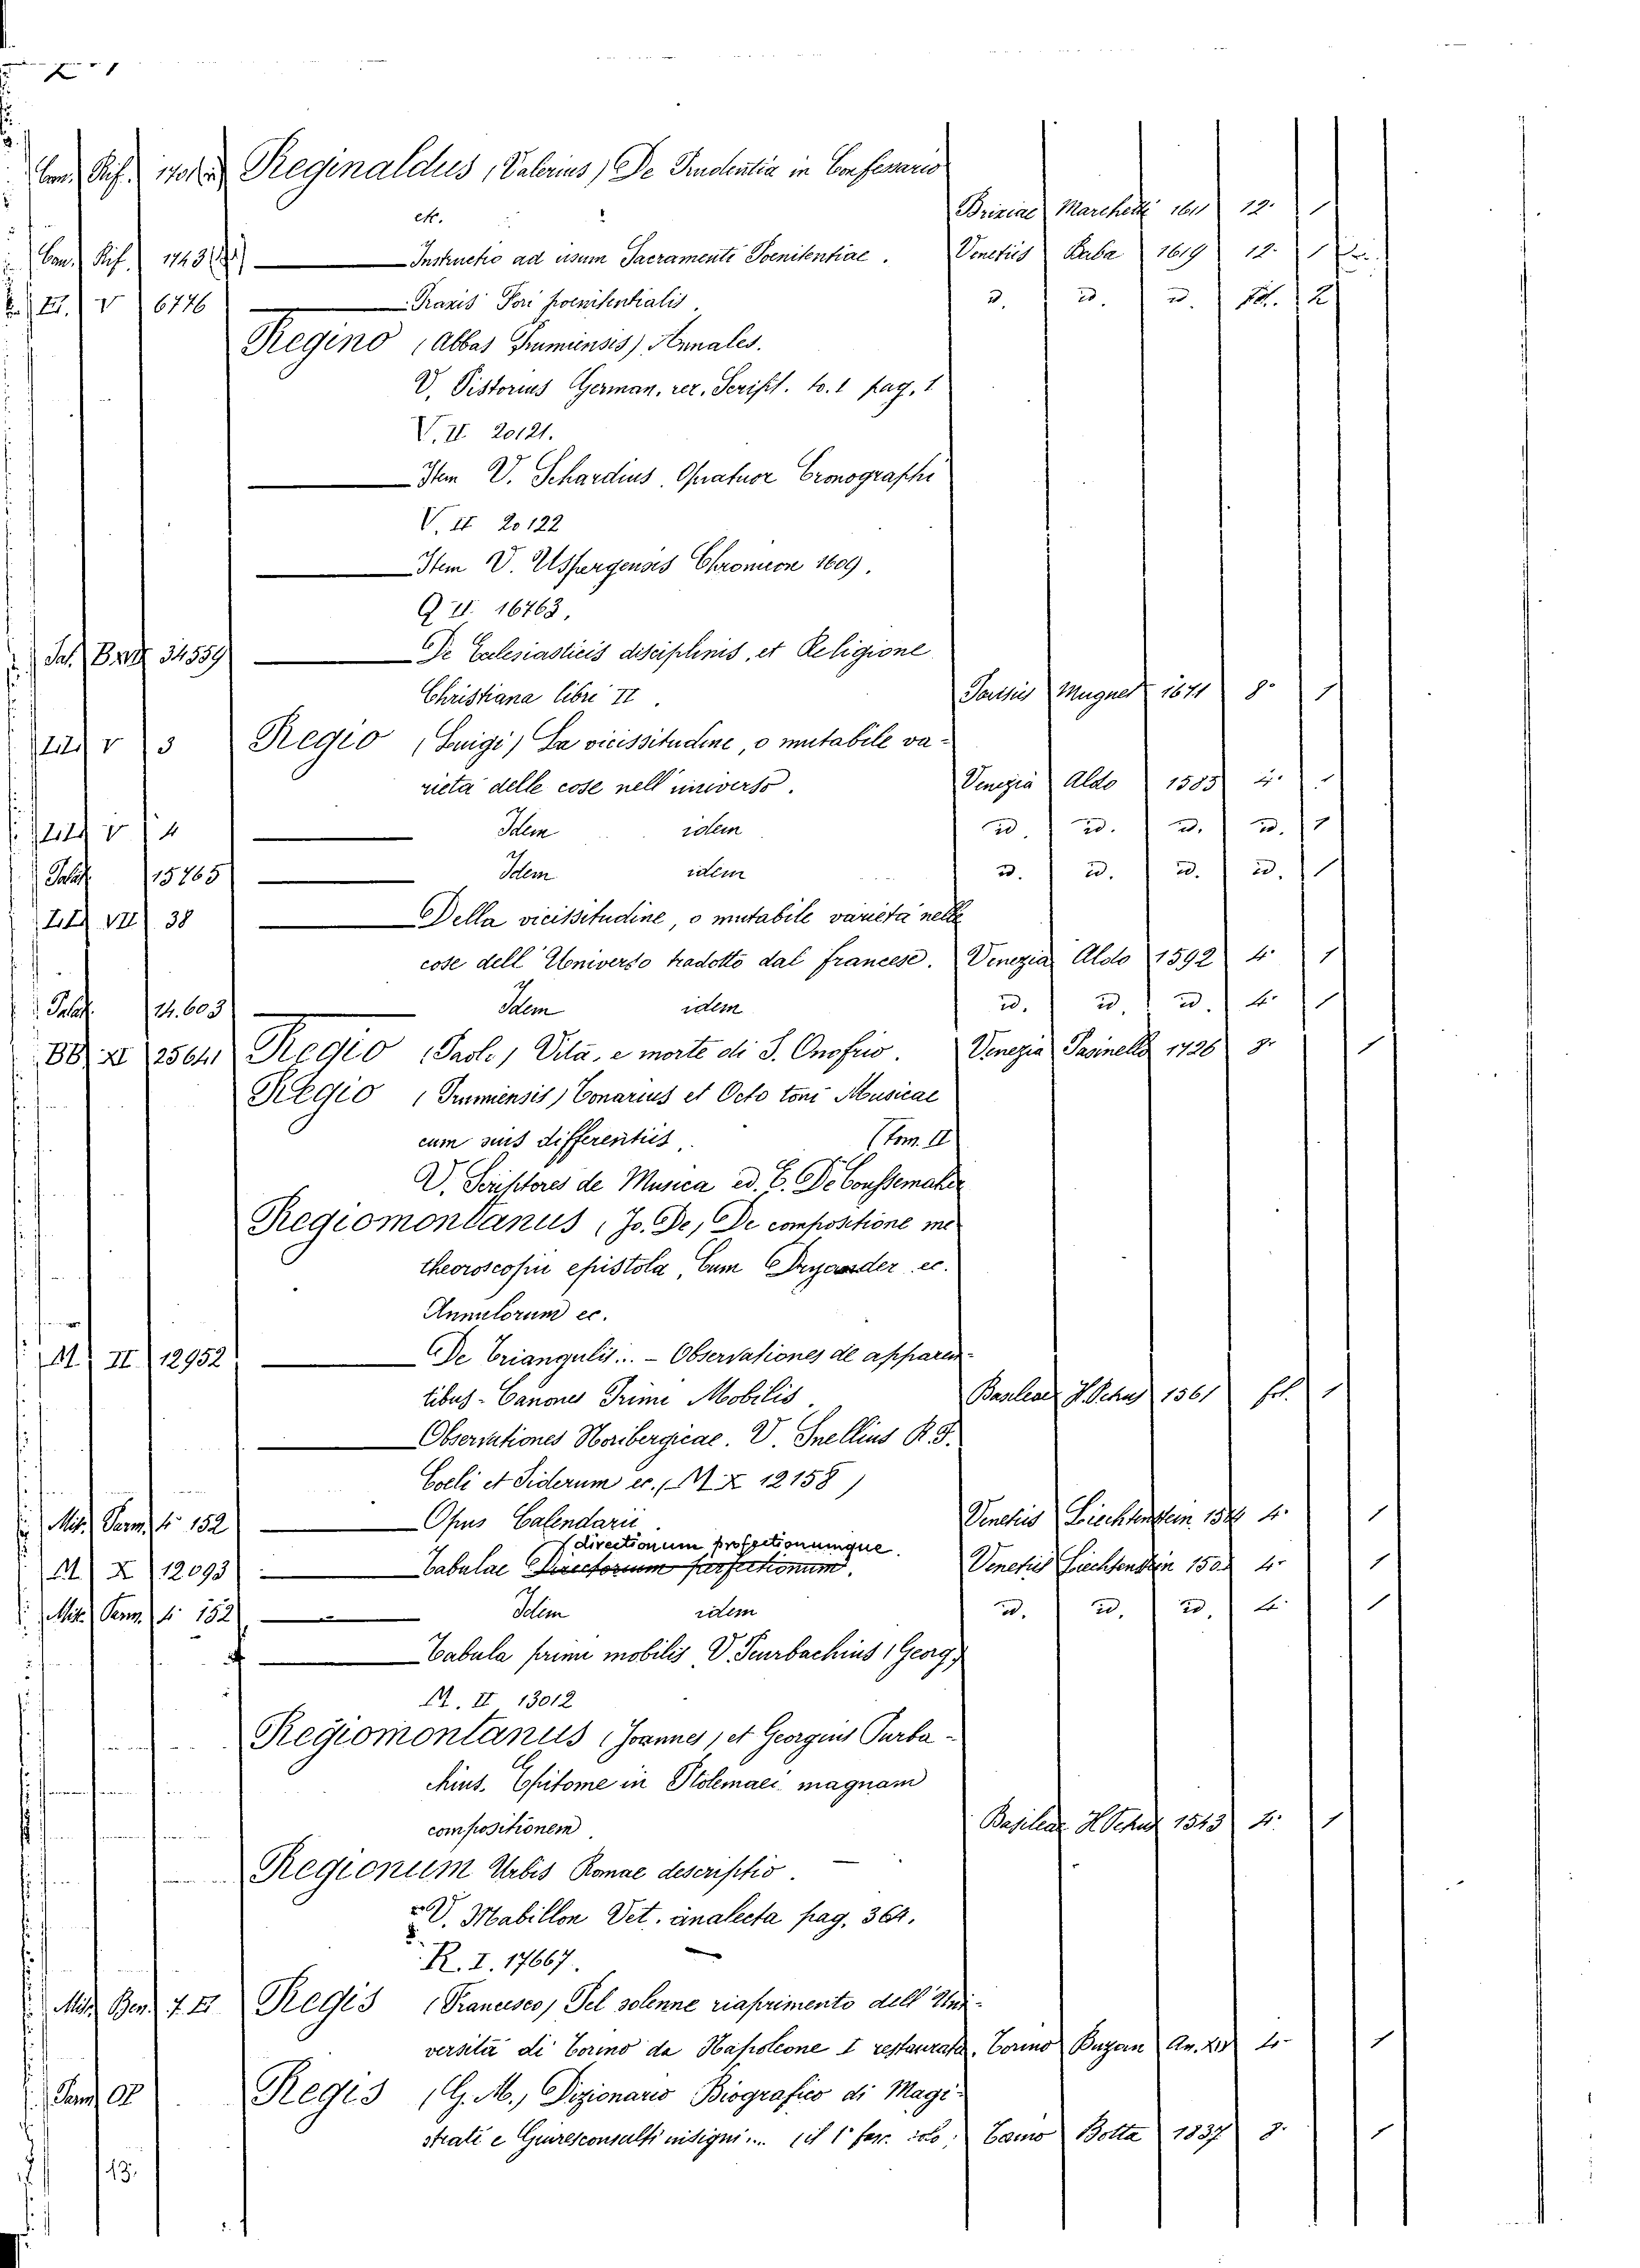 Reginaldus (Valerius) De Prudentia in Confessario
etc. Brixiae Marchetti 1611 12. 1
Con. Rif. 1743 Instructio ad usum Sacramenti Poenitentiae. Venetiis Baba 1619 12. 1
E. V 6776 Praxis Fori poenitentialis. id. id. id. fol. 2
Regino (Abbas Prumiensis) Annales.
V. Pistorius German. rer. Script. to. 1 pag. 1
V. II. 20121.
Item V. Schardius. Quatuor Cronographi
V. II 20122
Item V. Uspergensis Chronicon 1609.
Q II. 16763.
Sal. 34559 De Ecclesiasticis disciplinis, et Religione
Christiana libri II. Parisiis Muguet 1671 8. 1
V 3 Regio (Luigi) La vicissitudine, o mutabile va-
rietà delle cose nell'universo. Venezia Aldo 1585 4. 1
V 4 Idem idem id. id. id. id. 1
Palat. 15765 Idem idem id. id. id. id. 1
VII 38 Della vicissitudine, o mutabile varietà nelle
cose dell'Universo tradotto dal francese. Venezia Aldo 1592 4. 1
Palat. 14.603 Idem idem id. id. id. 4. 1
BB. XI 25641 Regio (Paolo) Vita, e morte di S. Onofrio. Venezia Pasinello 1726 8. 1
Regio (Prumiensis) Tonarius et Octo toni Musicae
cum suis differentiis. (Tom. II
V. Scriptores de Musica ed. E. De Coussemaker
Regiomontanus (Jo. De) De compositione me
theoroscopii epistola, Cum Dryander ec.
Annulorum ec.
M. II 12952 De Triangulis... - Observationes de apparen-
tibus - Canones Primi Mobilis. Basileae H. Petrus 1561 fol. 1
Observationes Noribergicae. V. Snellius R. F.
Coeli et Siderum ec. (M X 12158)
Mis. Parm. 4º 152 Opus Calendarii. Venetiis Liechtenstein 4. 1
directionum profectionumque.
M. X 12093 Tabulae Directorium perfectionum. Venetiis Liechtenstein 4. 1
Mis. Parm. 4º 152 Idem idem id. id. id. 4. 1
Tabula primi mobilis. V. Peurbachius (Georg)
M. II 13012
Regiomontanus (Joannes) et Georgius Purba-
chius. Epitome in Ptolemaei magnam
compositionem. Basileae H Petrus 1543 4. 1
Regionum Urbis Romae descriptio.
V. Mabillon Vet. analecta pag. 364.
R. I. 17667.
Mis. Ben. 4. II Regis (Francesco) Pel solenne riaprimento dell'Uni-
versità di Torino da Napoleone I restaurata. Torino Buzan An. XIV 4. 1
Parm. Regis (G. M.) Dizionario Biografico di Magi-
strati e Giureconsulti insigni... (il 1º fasc. solo) Torino Botta 1837 8. 1
13.